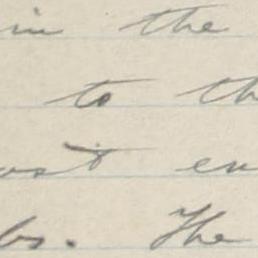 in the
to th
ost en
bs. The